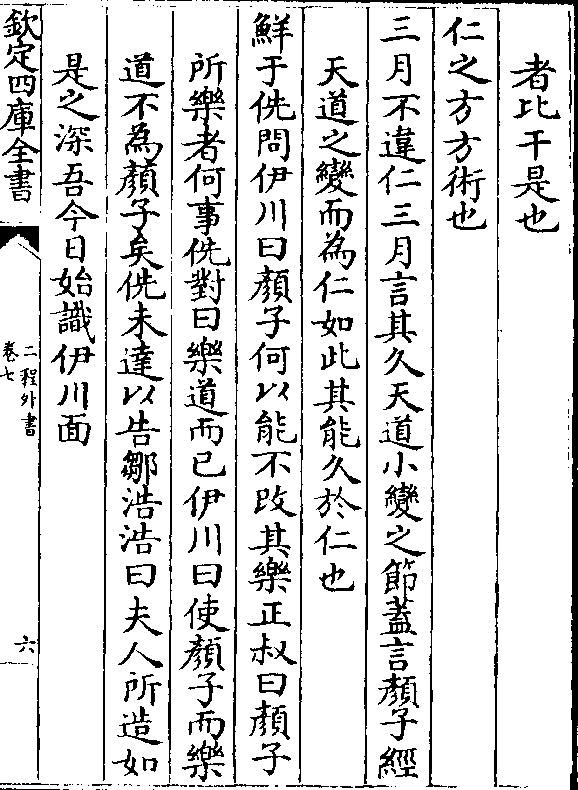 者比干是也
仁之方方術也
三月不違仁三月言其久天道小變之節蓋言顏子經
天道之變而為仁如此其能久於仁也
鮮于侁問伊川曰顏子何以能不改其樂正叔曰顏子
所樂者何事侁對曰樂道而已伊川曰使顏子而樂
道不為顏子矣侁未達以告鄒浩浩曰夫人所造如
是之深吾今日始識伊川面
欽定四庫全書
二程外書
卷七
六